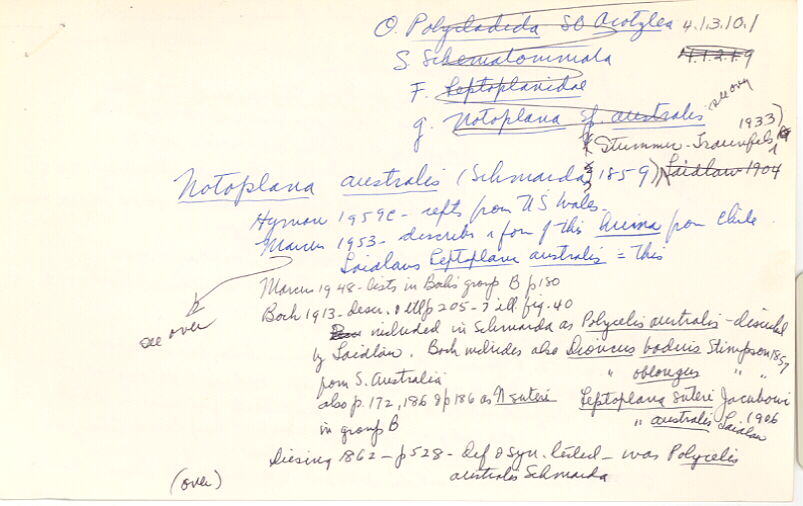 O. Polycladida SO Acotylea 4.1.3.10.1
S. Schematommata 4.1.2.1.9
F. Leptoplanidae
g. Notoplana sp. australis see over
(Stummer-Traunfels 1933)
Notoplana australis (Schmarda 1859) Laidlaw 1904
Hyman 1959c - repts from N S Wales -
Marcus 1953 - describes a fon of this from Chile.
Laidlaws Leptoplana australis = this
Marcus 1948 - lists in Bocks group B p 180
see over
Bock 1913 - descr. & ill p 205-7 ill. fig. 40
included in Schmarda as Polycelis australis - discussed
by Laidlaw. Bock includes also Dioncus badius Stimpson 1857
from S. Australia " oblongus " "
also p. 172, 186 & p 186 as N suteri Leptoplana suteri Jacubowa 1906
in group B " australis Laidlaw
Diesing 1862 - p 528 - def & syn. listed - was Polycelis
australis Schmarda
(over)